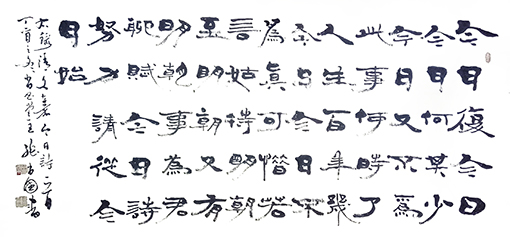 今日復今日
今日何其少
今日又不為
此事何時了
人生百年幾
今日今日不
為真可惜若
言姑待明朝
至明朝又有
明朝事為君
聊賦今日詩
努力請從今
日始
文嘉今日詩一首
丁酉之